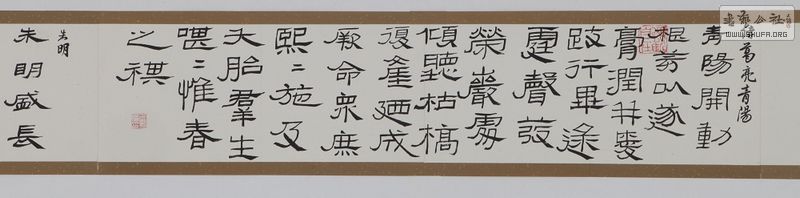 書藝公社
WWW.SHUFA.ORG
葛亮青陽
青陽開動
根荄以遂
膏潤并愛
跂行畢逮
霆聲發
榮巖處
傾聽枯槁
復產廼成
厥命衆庶
熙〻施及
夭胎羣生
啿〻惟春
之祺
朱明
朱明盛長